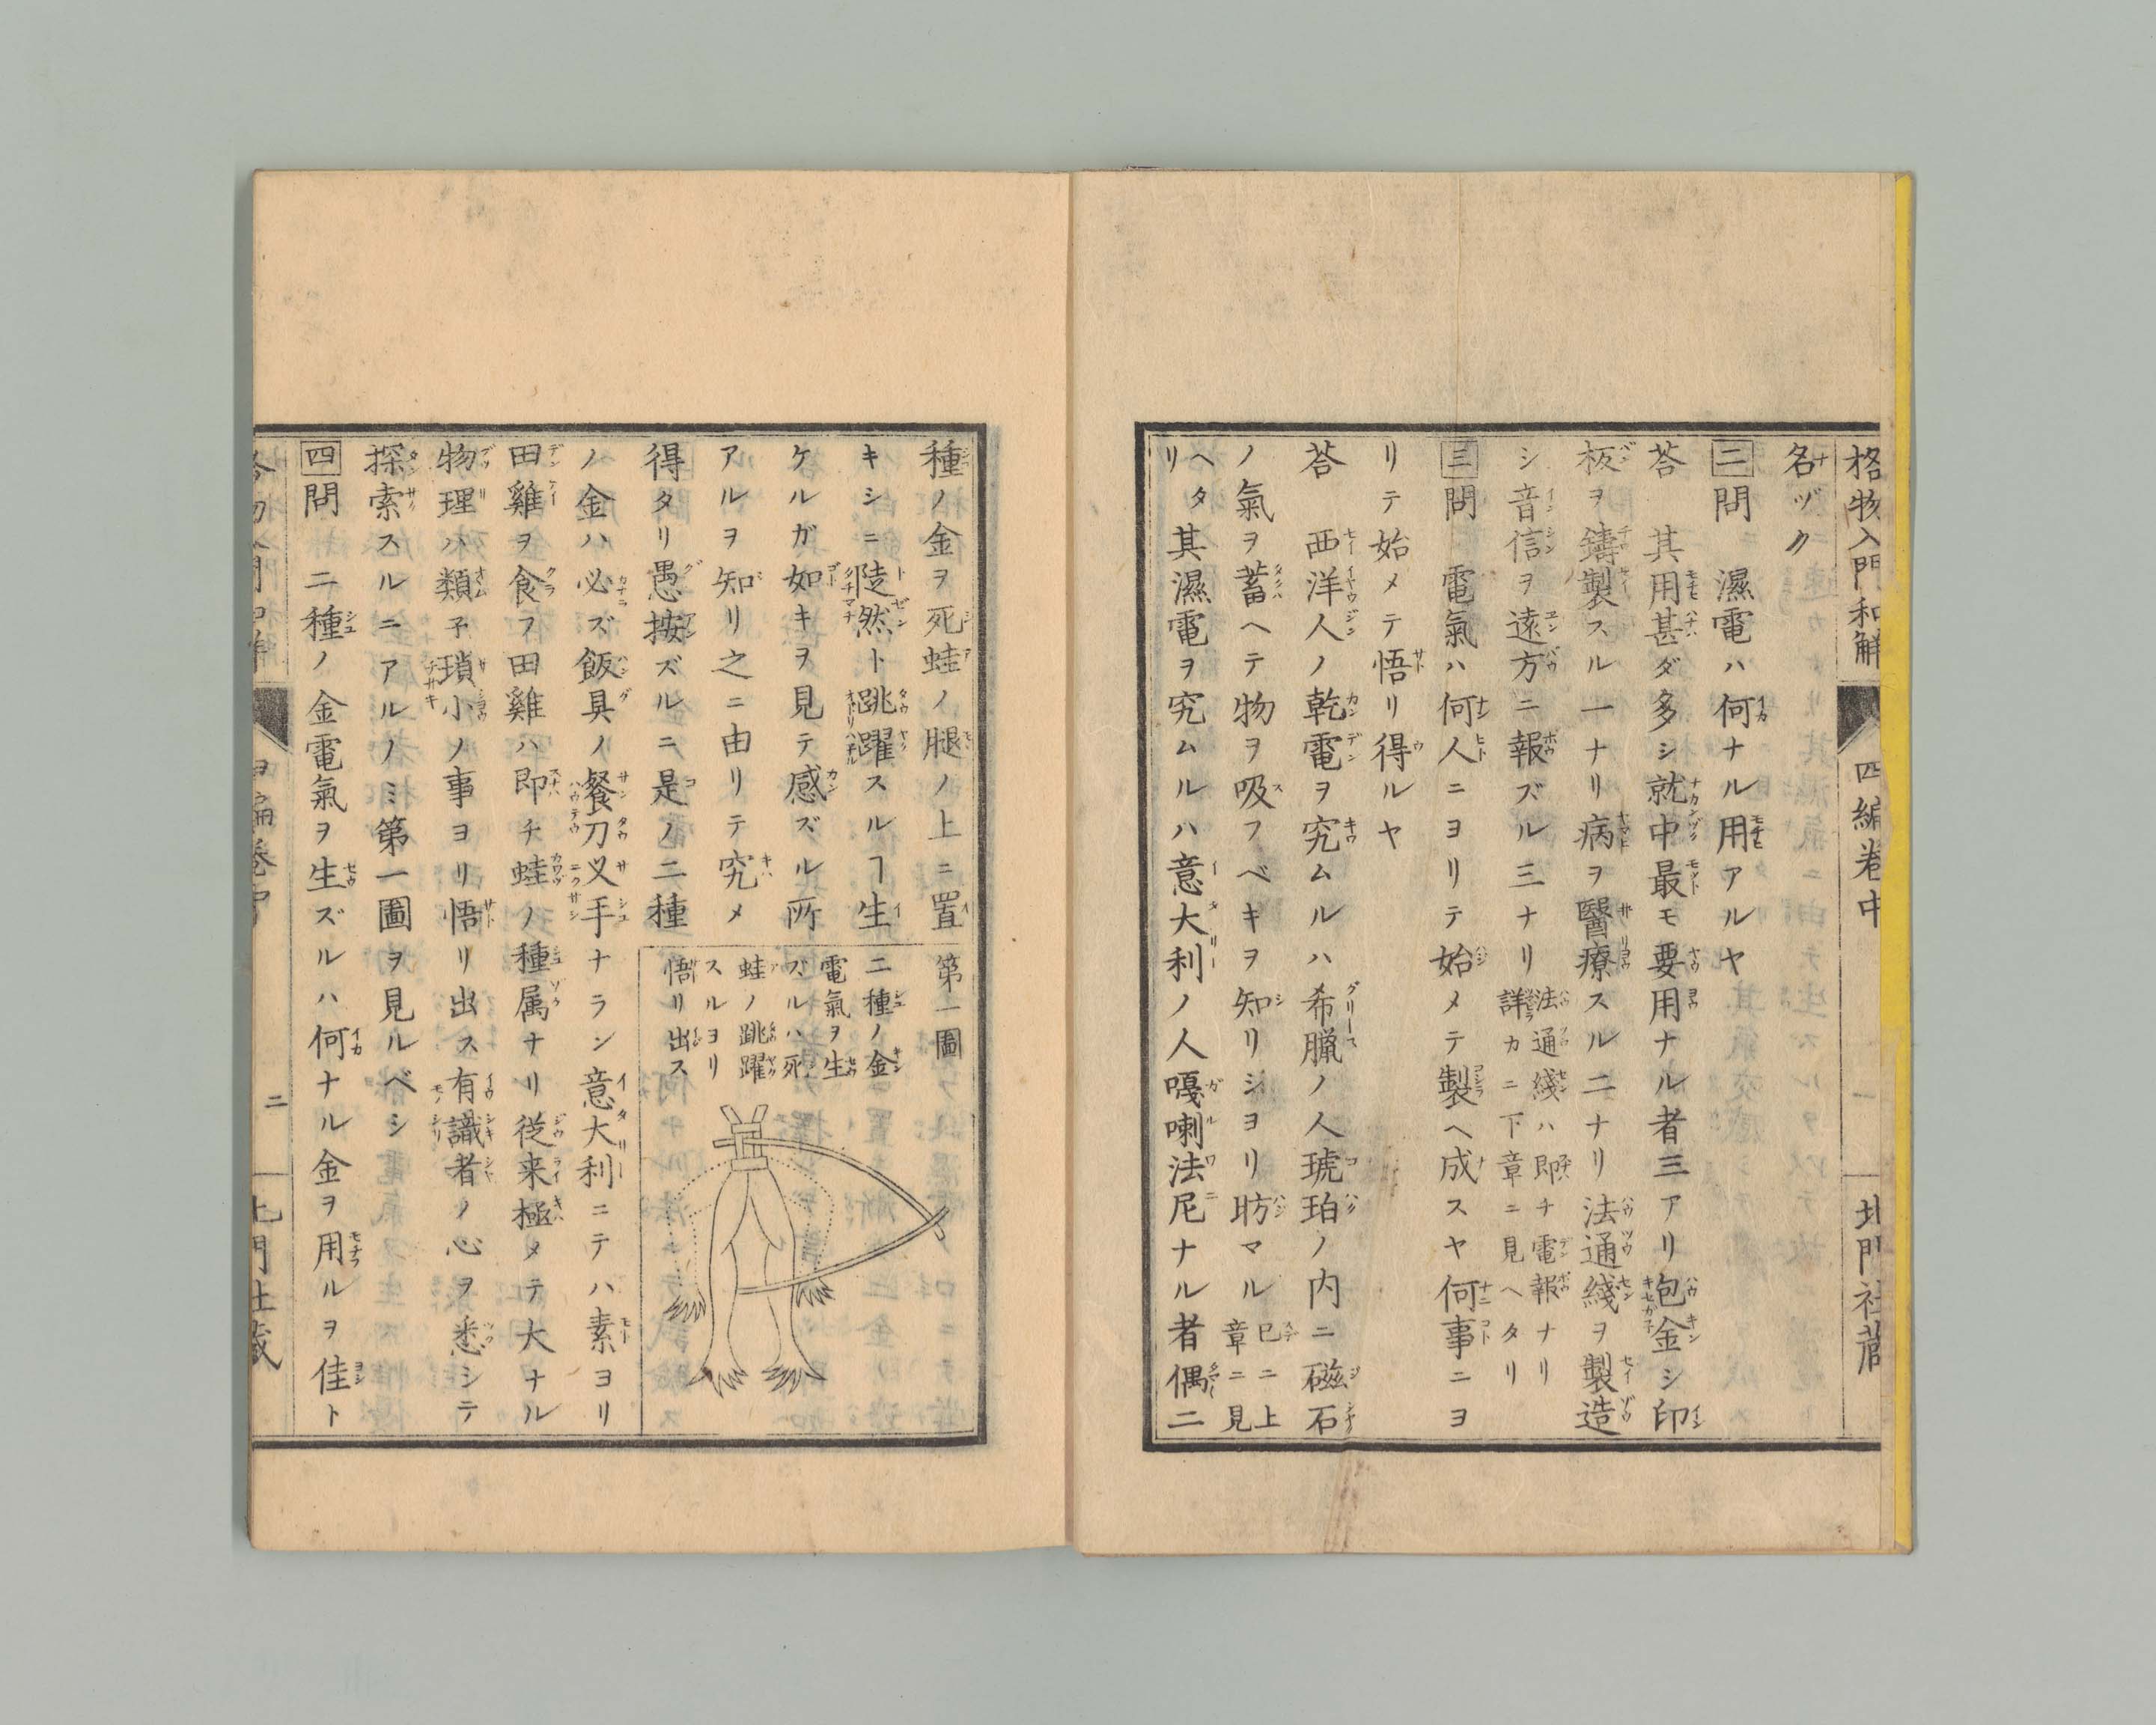 格物入門和解 四編卷中 一 北門社蔵
名ヅク
二問 濕電ハ何ナル用アルヤ
荅 其用甚ダ多シ就中最モ要用ナル者三アリ包金シ印
板ヲ鑄製スル一ナリ病ヲ醫療スル二ナリ法通綫ヲ製造
シ音信ヲ遠方ニ報ズル三ナリ 法通綫ハ即チ電報ナリ
詳カニ下章ニ見ヘタリ
三問 電氣ハ何人ニヨリテ始メテ製ヘ成スヤ何事ニヨ
リテ始メテ悟リ得ルヤ
荅 西洋人ノ乾電ヲ究ムルハ希臘ノ人琥珀ノ内ニ磁石
ノ氣ヲ蓄ヘテ物ヲ吸フベキヲ知リシヨリ昉マル 已ニ上
章ニ見
ヘタ
リ 其濕電ヲ究ムルハ意大利ノ人嘎喇法尼ナル者偶二
種ノ金ヲ死蛙ノ腿ノ上ニ置
キシニ陡然ト跳躍スルヿ生
ケルガ如キヲ見テ感ズル所
アルヲ知リ之ニ由リテ究メ
得タリ愚按ズルニ是ノ二種
第一圖
二種ノ金
電氣ヲ生
ズルハ死
蛙ノ跳躍
スルヨリ
悟リ出ス
ノ金ハ必ズ飯具ノ餐刀叉手ナラン意大利ニテハ素ヨリ
田雞ヲ食フ田雞ハ即チ蛙ノ種属ナリ従来極メテ大ナル
物理ハ類子瑣小ノ事ヨリ悟リ出ス有識者ノ心ヲ悉シテ
探索スルニアルノミ第一圖ヲ見ルベシ
四問 二種ノ金電氣ヲ生ズルハ何ナル金ヲ用ルヲ佳ト
格物入門和解 四編卷中 二 北門社蔵